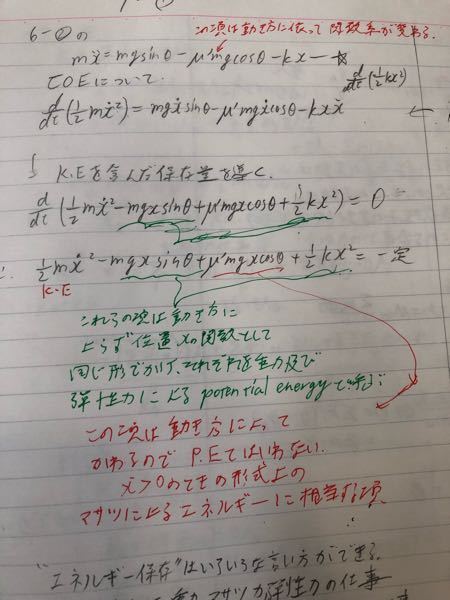 この項は動き方に依って関数系が変わる.
6-②の
mẍ = mg sinθ - μ'mg cosθ - kx - ☆
COEについて.
d/dt(1/2 kx²)
d/dt(1/2 mẋ²) = mgẋ sinθ - μ'mgẋ cosθ - kxẋ
K.Eを含んだ保存量を導く.
d/dt(1/2 mẋ² - mgx sinθ + μ'mgx cosθ + 1/2 kx²) = 0
1/2 mẋ² - mgx sinθ + μ'mgx cosθ + 1/2 kx² = 一定
K.E
これらの項は動き方に
よらず位置xの関数として
同じ形でかけ、それぞれ重力及び
弾性力による potential energy で
この項は動き方によって
かわるので P.Eとはいわない.
ẋ>0のときの形式上の
マサツによるエネルギーに相当する項
"エネルギー保存"はいろいろな言い方ができる.
マサツ力 弾性力の仕事